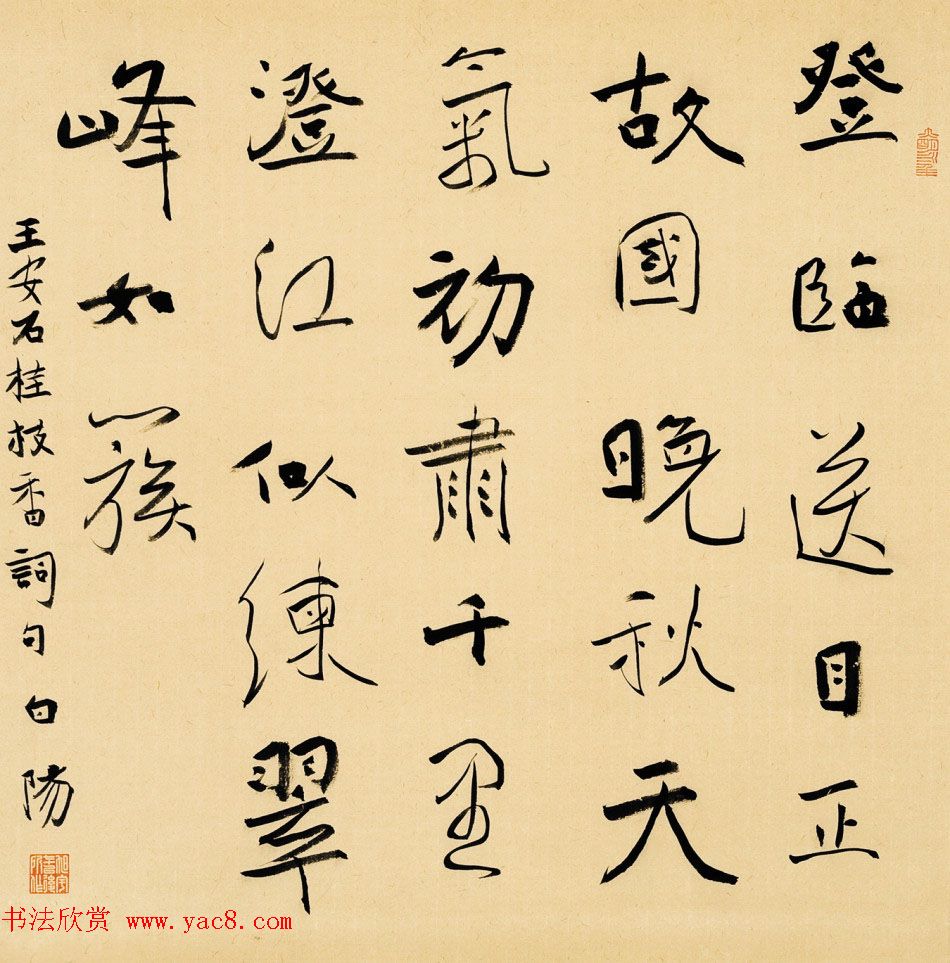 登臨送目正
故國晚秋天
氣初肅千里
澄江似練翠
峰如簇
王安石桂枝香詞句白陽
书法欣赏 www.yac8.com